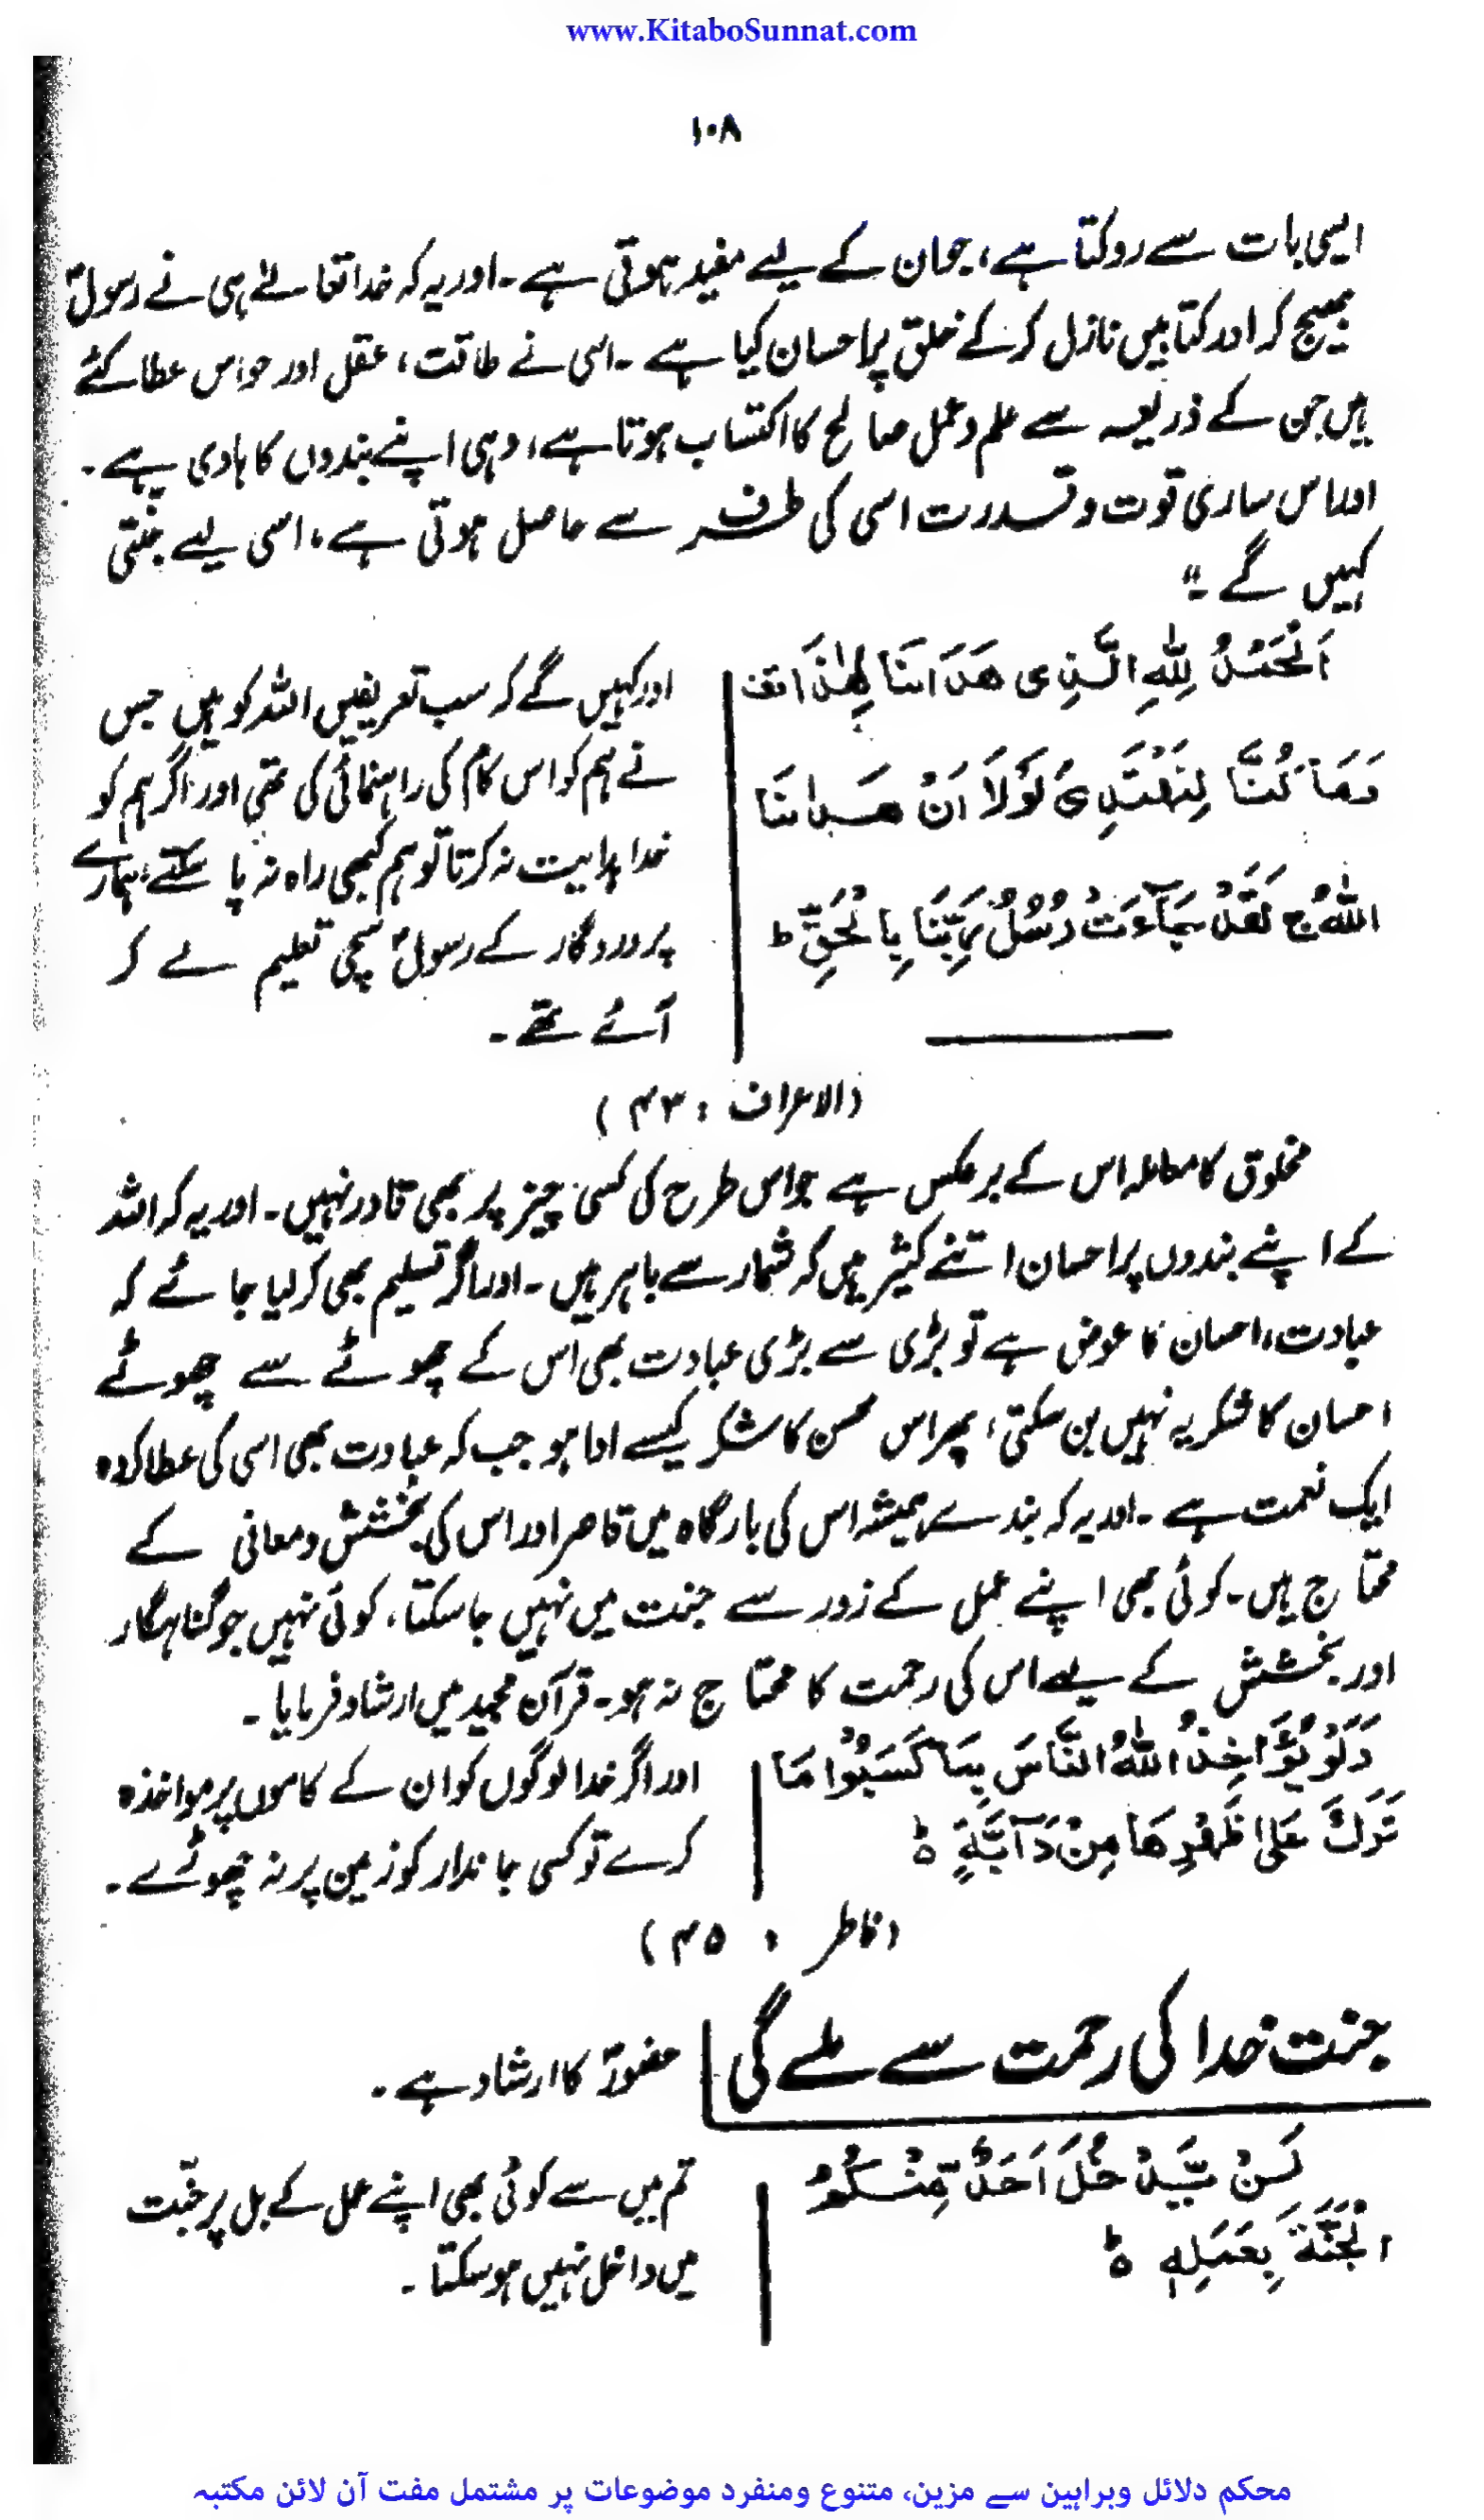 www.KitaboSunnat.com
۱۰۸
ایسی بات سے روکتا ہے، جوان کے لیے مفید ہوتی ہے ۔ اور یہ کہ خدا تعالےٰ ہی نے رسولؐ
بھیج کر اور کتابیں نازل کر کے خلق پر احسان کیا ہے ۔ اسی نے طاقت، عقل اور حواس عطا کئے
ہیں جن کے ذریعہ سے علم و عمل صالح کا اکتساب ہوتا ہے، وہی اپنے بندوں کا ہادی ہے ۔
اور اس ساری قوت و قدرت اسی کی طرف سے حاصل ہوتی ہے، اسی لیے جنتی
کہیں گے ۔"
اَلْحَمْدُ لِلّٰهِ الَّذِی هَدَانَا لِهٰذَا قف
وَمَا كُنَّا لِنَهْتَدِیَ لَوْلَا اَنْ هَدٰىنَا
اللّٰهُ ج لَقَدْ جَآءَتْ رُسُلُ رَبِّنَا بِالْحَقِّ ط
اور کہیں گے کہ سب تعریفیں اللہ کو ہیں جس
نے ہم کو اس کام کی راہنمائی کی تھی اور اگر ہم کو
خدا ہدایت نہ کرتا تو ہم کبھی راہ نہ پا سکتے، ہمارے
پروردگار کے رسولؐ سچی تعلیم لے کر
آئے تھے ۔
(الاعراف : ۴۳)
مخلوق کا معاملہ اس کے برعکس ہے جو اس طرح کی کسی چیز پر بھی قادر نہیں ۔ اور یہ کہ اللہ
کے اپنے بندوں پر احسان اتنے کثیر ہیں کہ شمار سے باہر ہیں ۔ اور اگر تسلیم بھی کر لیا جائے کہ
عبادت، احسان کا عوض ہے تو بڑی سے بڑی عبادت بھی اس کے چھوٹے سے چھوٹے
احسان کا شکریہ نہیں بن سکتی، پھر اس محسن کا شکر کیسے ادا ہو جب کہ عبادت بھی اسی کی عطا کردہ
ایک نعمت ہے ۔ اور یہ کہ بندے ہمیشہ اس کی بارگاہ میں قاصر اور اس کی بخشش و معافی کے
محتاج ہیں ۔ کوئی بھی اپنے عمل کے زور سے جنت میں نہیں جا سکتا، کوئی نہیں جو گناہگار
اور بخشش کے لیے اس کی رحمت کا محتاج نہ ہو ۔ قرآن مجید میں ارشاد فرمایا ۔
وَلَوْ يُؤَاخِذُ اللّٰهُ النَّاسَ بِمَا كَسَبُوْا مَا
تَرَكَ عَلٰى ظَهْرِهَا مِنْ دَآبَّةٍ ہ
اور اگر خدا لوگوں کو ان کے کاموں پر مواخذہ
کرے تو کسی جاندار کو زمین پر نہ چھوڑے ۔
(فاطر : ۴۵)
جنت خدا کی رحمت سے ملے گی
حضورؐ کا ارشاد ہے ۔
لَنْ يَّدْخُلَ اَحَدٌ مِّنْكُمُ
الْجَنَّةَ بِعَمَلِهٖ ہ
تم میں سے کوئی بھی اپنے عمل کے بل پر جنّت
میں داخل نہیں ہو سکتا ۔
محکم دلائل وبراہین سے مزین، متنوع ومنفرد موضوعات پر مشتمل مفت آن لائن مکتبہ